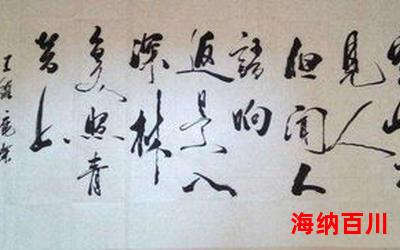 空山不
見人
但闻人
語响
返景入
深林
复照青
苔上
王维鹿柴
海纳百川